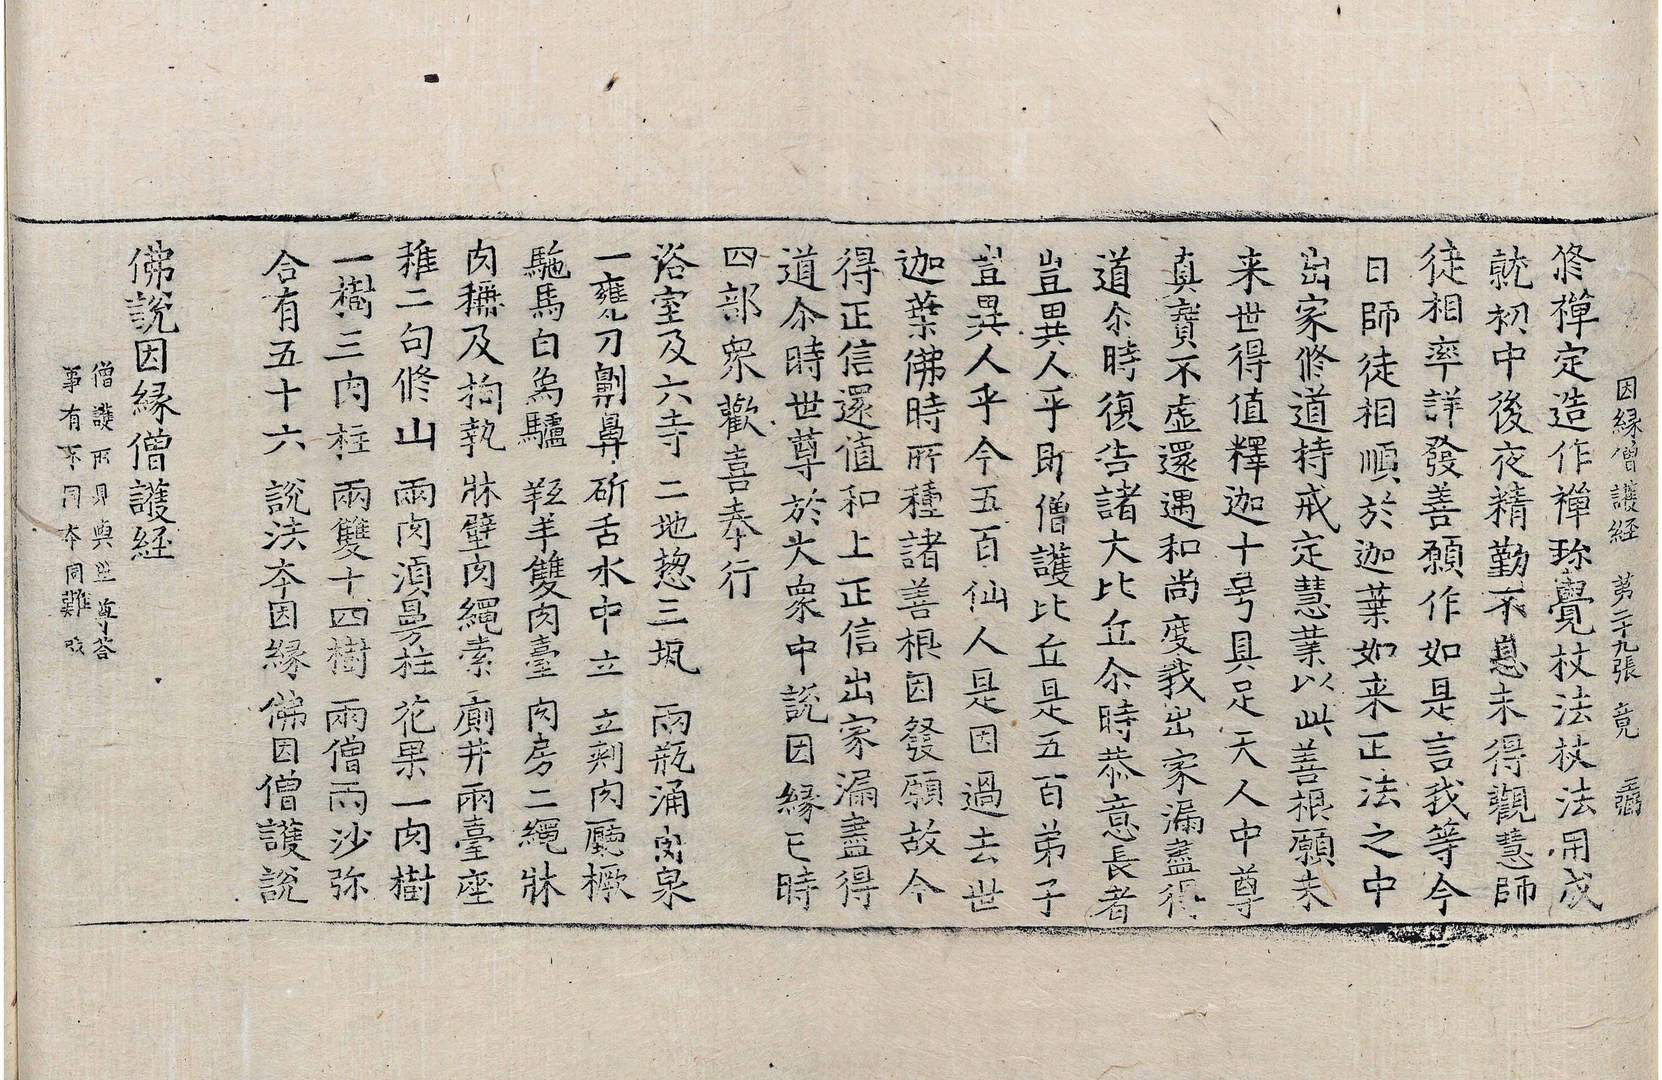 因縁僧護経 第二十九張 竟
修禅定造作禅𤨏覺杖法杖法用戒
就初中後夜精勤不息未得觀慧師
徒相率詳發善願作如是言我等今
日師徒相順於迦葉如来正法之中
出家修道持戒定慧業以此善根願未
来世得值釋迦十号具足天人中尊
真寶不虚還遇和尚度我出家漏盡得
道尒時復告諸大比丘尒時恭意長者
豈異人乎則僧護比丘是五百弟子
豈異人乎今五百仙人是因過去世
迦葉佛時所種諸善根因發願故今
得正信還值和上正信出家漏盡得
道尒時世尊於大衆中説因縁已時
四部衆歡喜奉行
浴室及六寺 二地惣三瓨 兩瓶涌肉泉
一甕刀劓鼻 斫舌水中立 立剌肉廳橛
駞馬白烏驢 羝羊雙肉臺 肉房二繩牀
肉秤及拘執 牀壁肉繩索 廁井兩臺座
稚二句修山 兩肉湏㝵柱 花果一肉樹
一樹三肉柱 兩雙十四樹 兩僧兩沙弥
合有五十六 説法夲因縁 佛因僧護説
佛説因縁僧護経
僧護所見與世尊荅
事有不同夲同難改